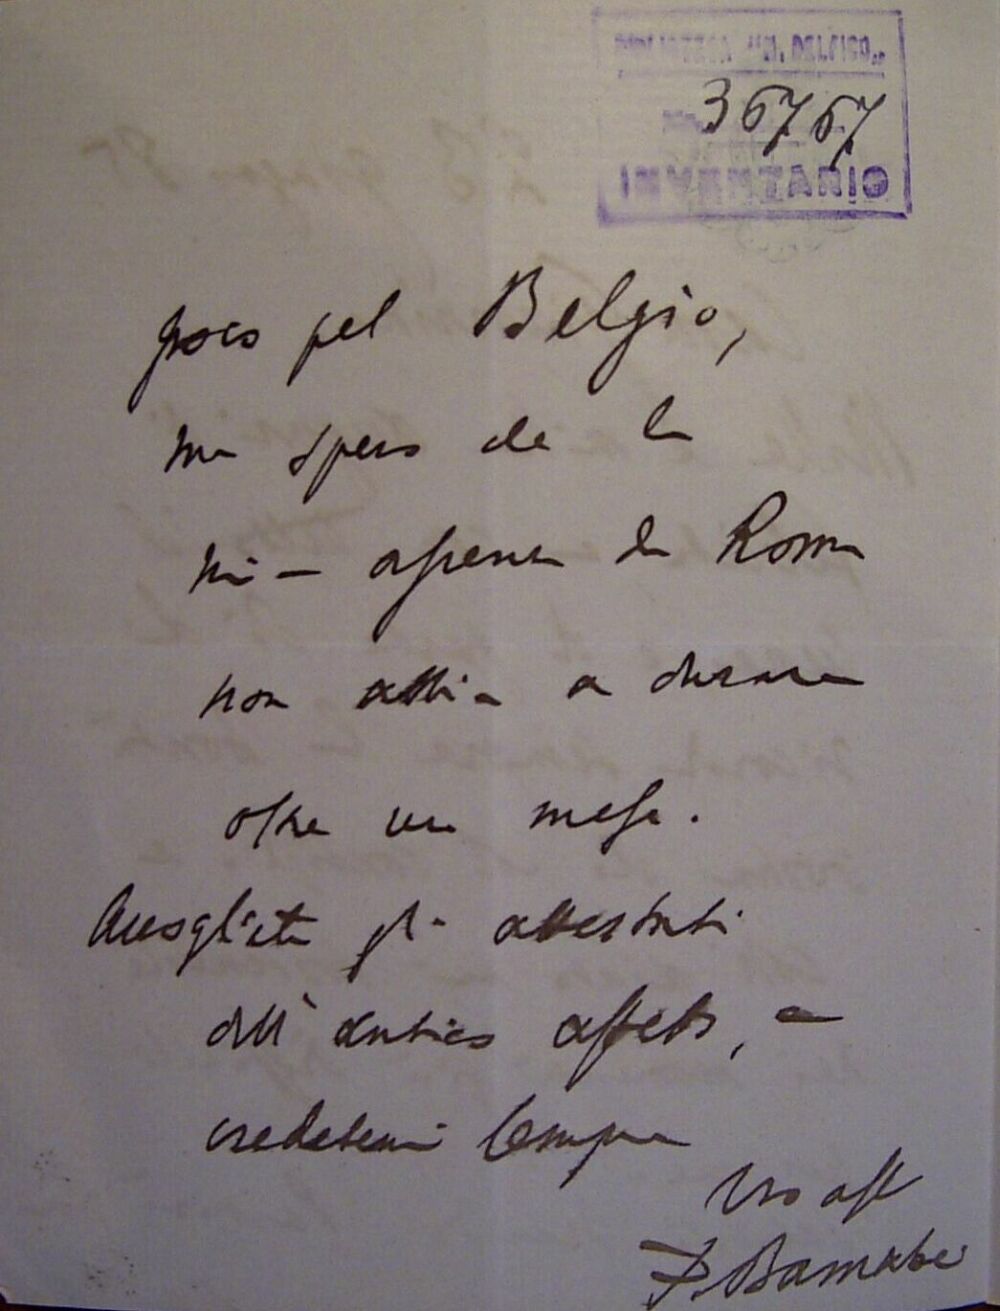 36767
INVENTARIO
poco pel Belgio,
ma spero che la
mia assenza da Roma
non abbia a durare
oltre un mese.
Accogliete gli attestati
dell'antico affetto, e
credetemi sempre
Vro aff
F. Barnabei